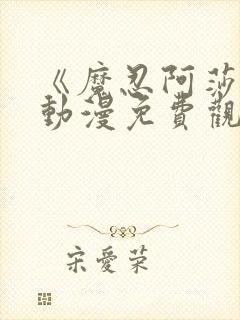 《魔忍阿莎
動漫免費觀
宋愛荣